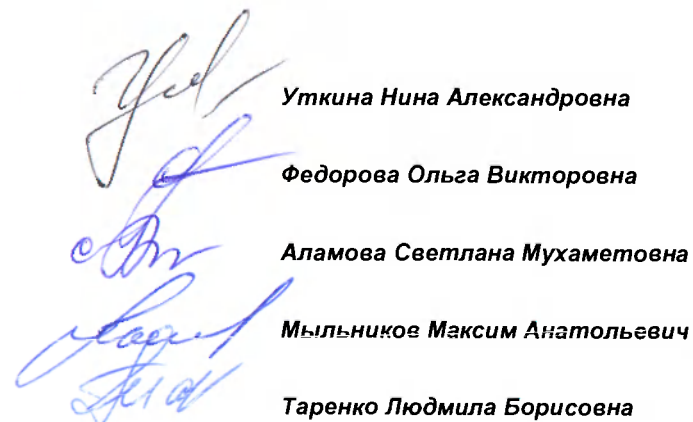 Уткина Нина Александровна
Федорова Ольга Викторовна
Аламова Светлана Мухаметовна
Мыльников Максим Анатольевич
Таренко Людмила Борисовна